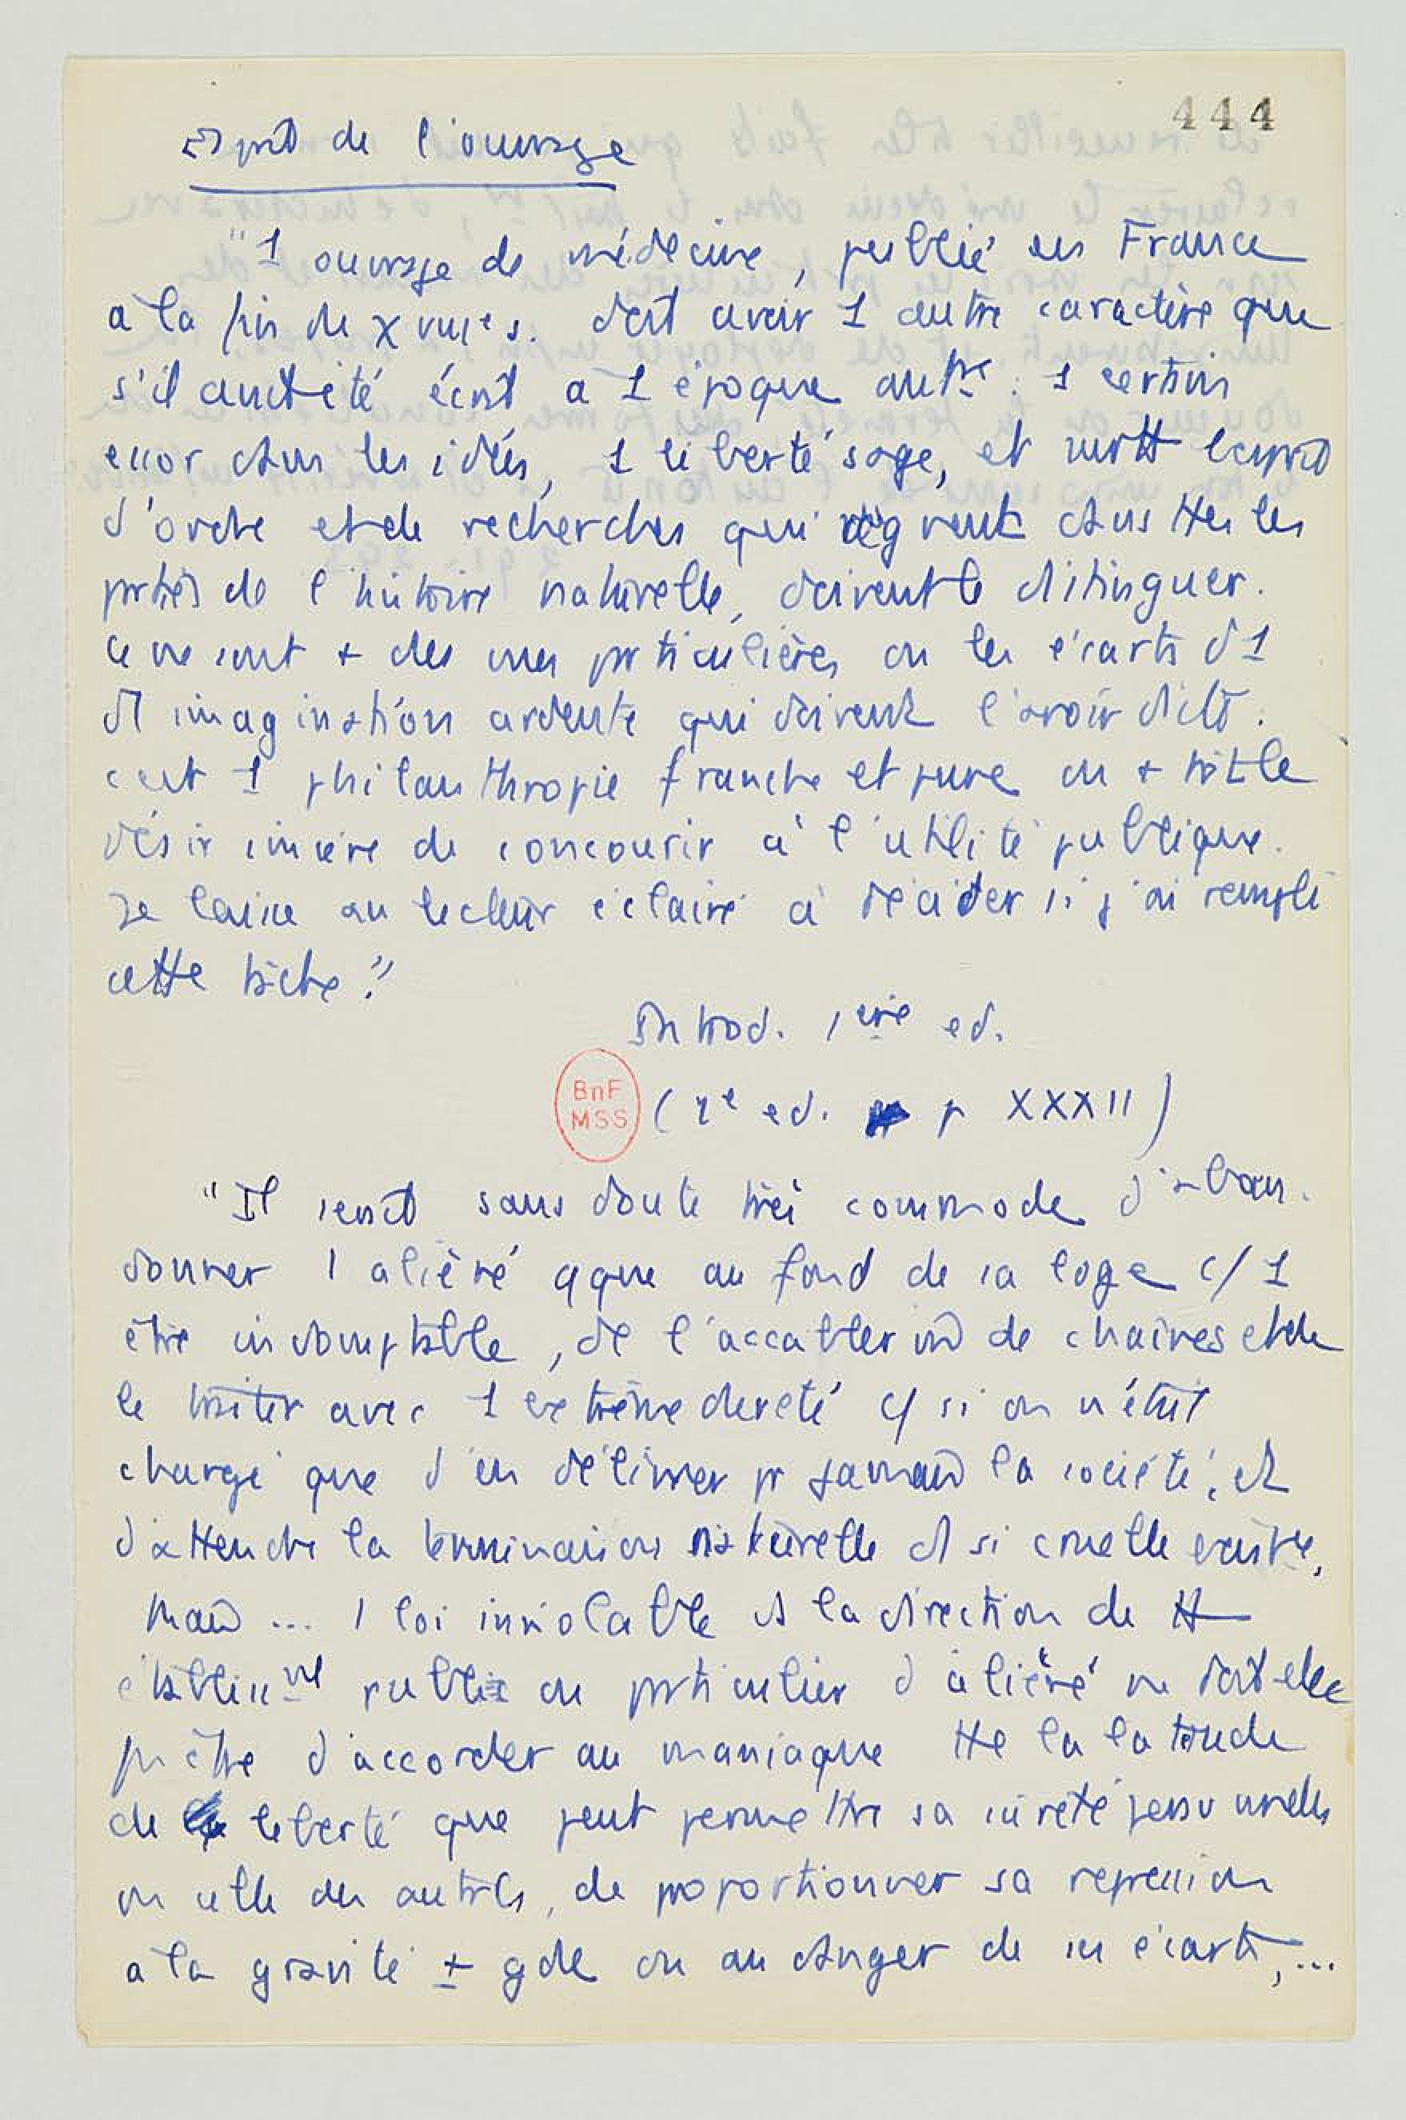 444
Esprit de l'ouvrage
"1 ouvrage de médecine, publié en France
à la fin du XVIIIe s. doit avoir 1 autre caractère que
s'il avait été écrit à 1 époque antre : 1 certain
essor dans les idées, 1 liberté sage, et surtt l'esprit
d'ordre et de recherches qui règnent dans ttes les
prties de l'histoire naturelle, doivent le distinguer.
Ce ne sont + des vues prticulières ou les écarts d'1
d'1 imagination ardente qui doivent l'avoir dicté :
c'est 1 philanthropie franche et pure ou + tôt le
désir sincère de concourir à l'utilité publique.
Je laisse au lecteur éclairé à décider si j'ai rempli
cette tâche."
Introd. 1ère ed.
(2e ed. p XXXII)
BnF
MSS
"Il serait sans doute très commode d'aban-
donner 1 aliéné qque au fond de sa loge c/ 1
être indomptable, de l'accabler de chaînes et de
le traiter avec 1 extrême dureté c/ si on n'était
chargé que d'en délivrer pr jamais la société, et
d'attendre la terminaison naturelle d'1 si cruelle existce,
Mais ... 1 loi inviolable ds la direction de tt
établissmt public ou prticulier d'aliéné ne doit-elle
pr être d'accorder au maniaque tte la latitude
de liberté que peut permettre sa sûreté personnelle
ou celle des autres, de proportionner sa répression
à la gravité ± gde ou au danger de ses écarts, ...